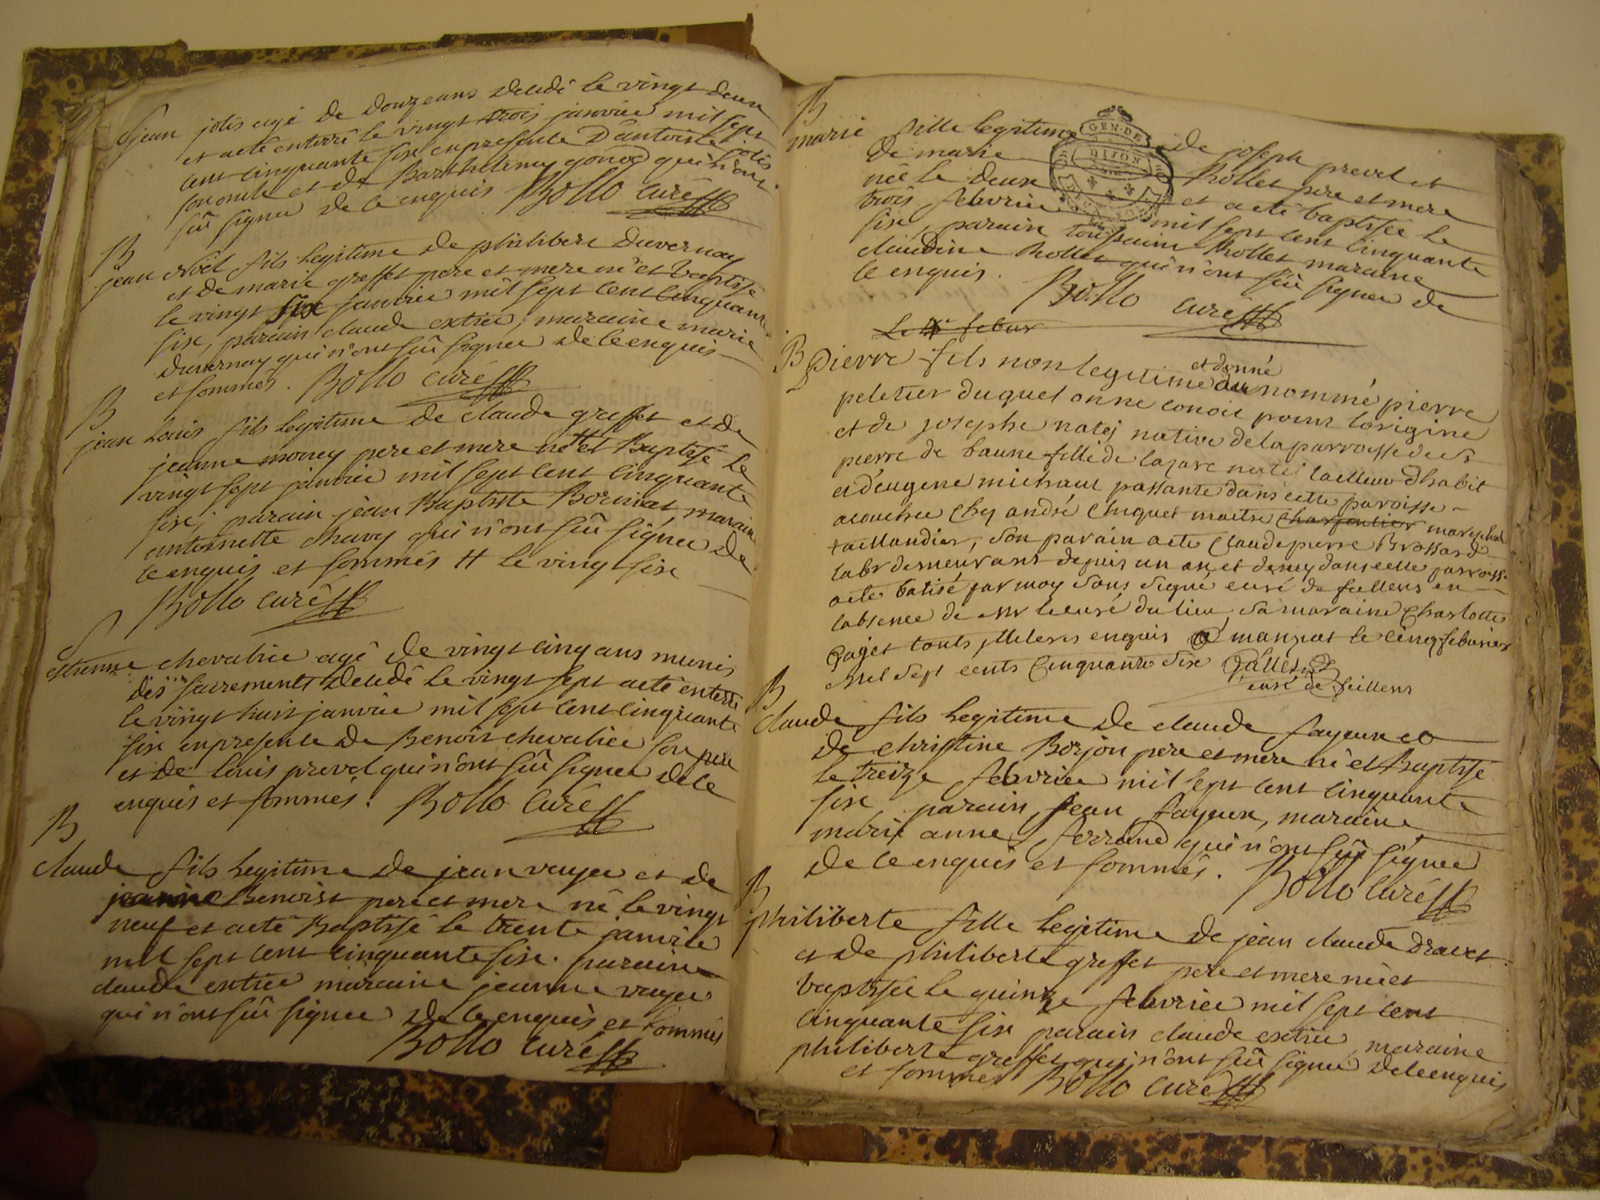 jean jolis agé de douze ans decedé le vingt deux
et a eté enterré le vingt trois janvier mil sept
cent cinquante six en presence D'antoine jolis
son oncle et de Barthelemy gonod qui n'ont
sûs signer de ce enquis Bollo curé
B
jean Noël fils legitime de philibert Duvernay
et de marie greffet pere et mere né et baptisé
le vingt six janvier mil sept cent cinquante
six, parain claude extier, maraine marie
Duvernay qui n'ont sûs signer de ce enquis
et sommés. Bollo curé
B
jean Louis fils legitime de claude greffet et de
jeanne morey pere et mere né et Baptisé le
vingt sept janvier mil sept cent cinquante
six, parain jean Baptiste maraine
antoinette chavy qui n'ont sûs signer de
ce enquis et sommés # le vingt six
Bollo curé
S
estienne chevalier agé de vingt cinq ans munis
des sacrements decedé le vingt sept a eté enterré
le vingt huit janvier mil sept cent cinquante
six en presence de Benoist chevalier son pere
et de louis prevel qui n'ont sûs signer de ce
enquis et sommés. Bollo curé
B
claude fils legitime de jean vayer et de
jeanne Benoist pere et mere né le vingt
neuf et a eté Baptisé le trente janvier
mil sept cent cinquante six. parain
claude extier maraine jeanne vayer
qui n'ont sûs signer de ce enquis et sommés
Bollo curé
B
marie fille legitime de joseph prevel et
de marie Rollet pere et mere
née le deux et a eté baptisée le
trois febvrier mil sept cent cinquante
six, parain toussaint Rollet maraine
claudine Rollet qui n'ont sûs signer de
ce enquis. Bollo curé
GEN. DE
DIJON
Le 4e febur
B
pierre fils non legitime et donné au nommé pierre
peletier duquel on ne conoit point lorigine
et de josephe natej native de la parroisse de St
pierre de baune fille de lazare natej tailleur dhabit
et deugene michaut passante dans cette paroisse
acouchee chez andré Chiquet maitre charpentier marechal
taillandier, son parain a ete Claude pierre Brossard
labr demeurant depuis un an et demy dans cette parroisse
a ete batisé par moy sous signé curé de feillens en
labsence de Mr le curé du lieu, sa maraine Charlotte
gaget touts illiteres enquis a manziat le cinq febvrier
mil sept cents cinquante six Gallet
curé de feillens
B
claude fils legitime de claude fayeux et
de christine Borjon pere et mere né et Baptisé
le treize febvrier mil sept cent cinquante
six parain, jean fayeux, maraine
marie anne ferrand qui n'ont sûs signer
de ce enquis et sommés. Bollo curé
B
philiberte fille legitime de jean claude dravet
et de philiberte greffet pere et mere née et
baptisée le quinze febvrier mil sept cent
cinquante six parain claude extier maraine
philiberte greffet qui n'ont sûs signer de ce enquis
et sommés Bollo curé